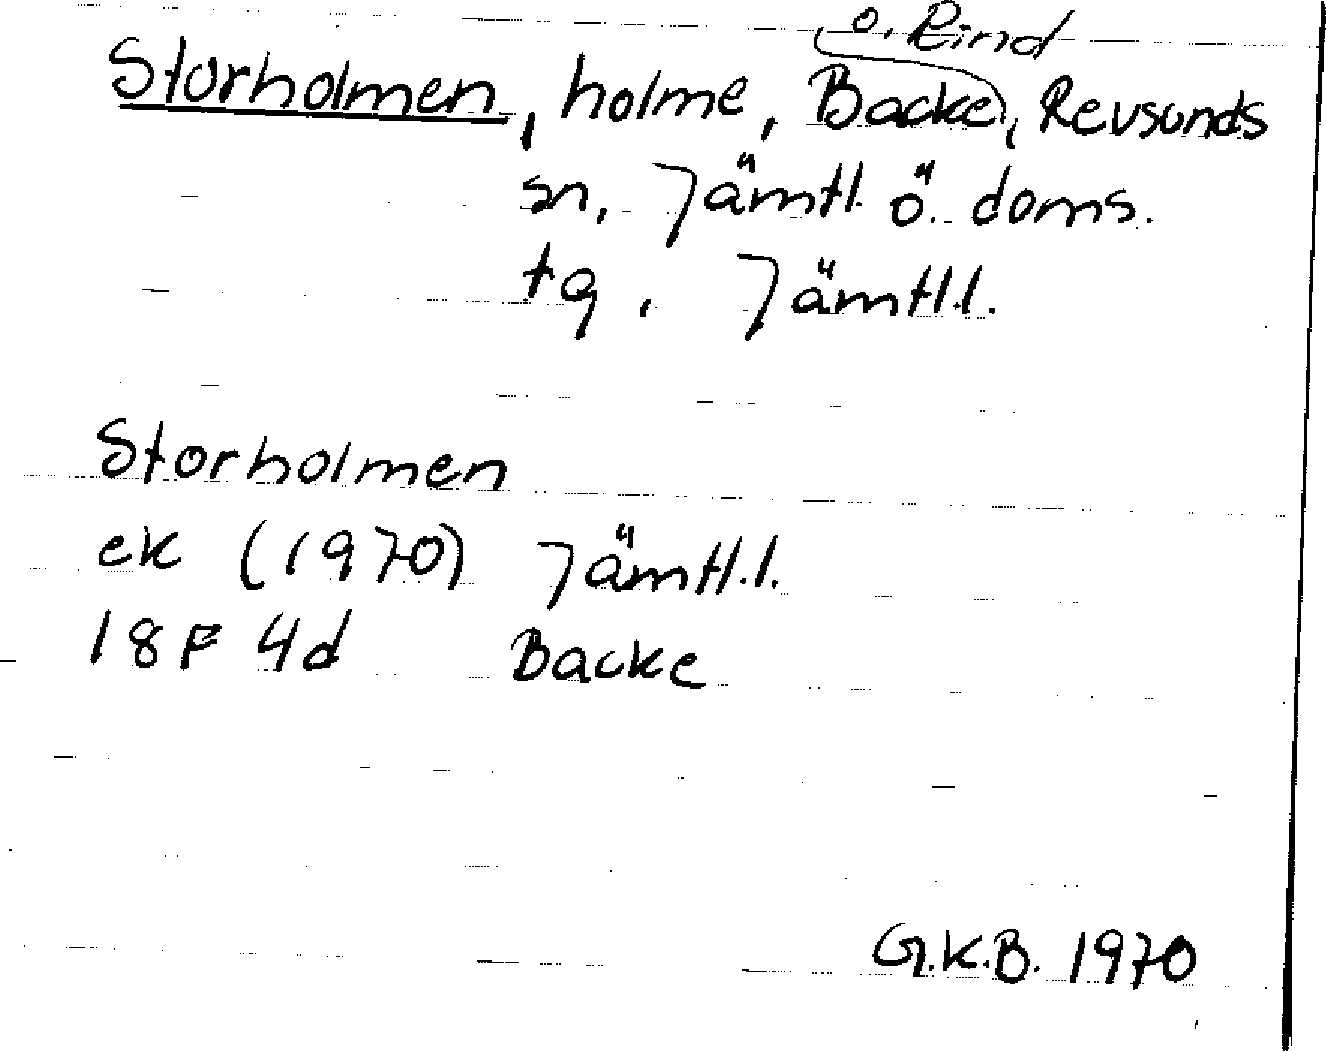 o. Rind
Storholmen, holme, Backe, Revsunds
sn, Jämtl. ö. doms.
tg, Jämtl.l.
Storholmen
ek (1970) Jämtl.l.
18F 4d Backe
G.K.B. 1970